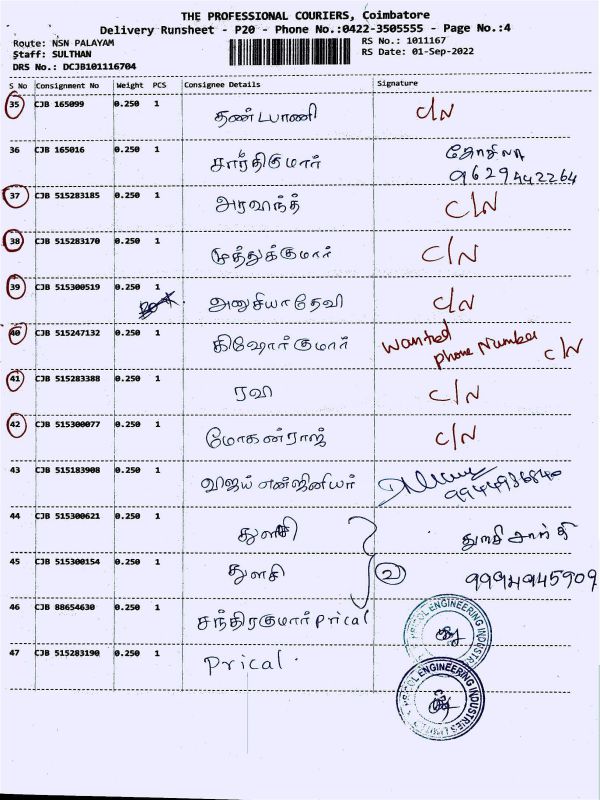 THE PROFESSIONAL COURIERS, Coimbatore
Delivery Runsheet - P20 - Phone No.:0422-3505555 - Page No.:4
Route: NSN PALAYAM
RS No.: 1011167
Staff: SULTHAN
RS Date: 01-Sep-2022
DRS No.: DCJB101116704
S No Consignment No Weight PCS Consignee Details Signature
35 CJB 165099 0.250 1 தண்டபாணி C/N
36 CJB 165016 0.250 1 சார்திகுமார்
9629442264
37 CJB 515283185 0.250 1 அரவிந்த் C/N
38 CJB 515283170 0.250 1 முத்துக்குமார் C/N
39 CJB 515300519 0.250 1 அனுசியாதேவி C/N
40 CJB 515247132 0.250 1 கிஷோர்குமார் Wanted
phone Number C/N
41 CJB 515283388 0.250 1 ரவி C/N
42 CJB 515300077 0.250 1 மோகன்ராஜ் C/N
43 CJB 515183908 0.250 1 விஜய் என்ஜினியர்
44 CJB 515300621 0.250 1 துளசி துளசி
45 CJB 515300154 0.250 1 துளசி 2 9994945909
46 CJB 88654630 0.250 1 சந்திரகுமார் Prical
PRICOL ENGINEERING INDUSTRIES
47 CJB 515283190 0.250 1 Prical.
PRICOL ENGINEERING INDUSTRIES LIMITED